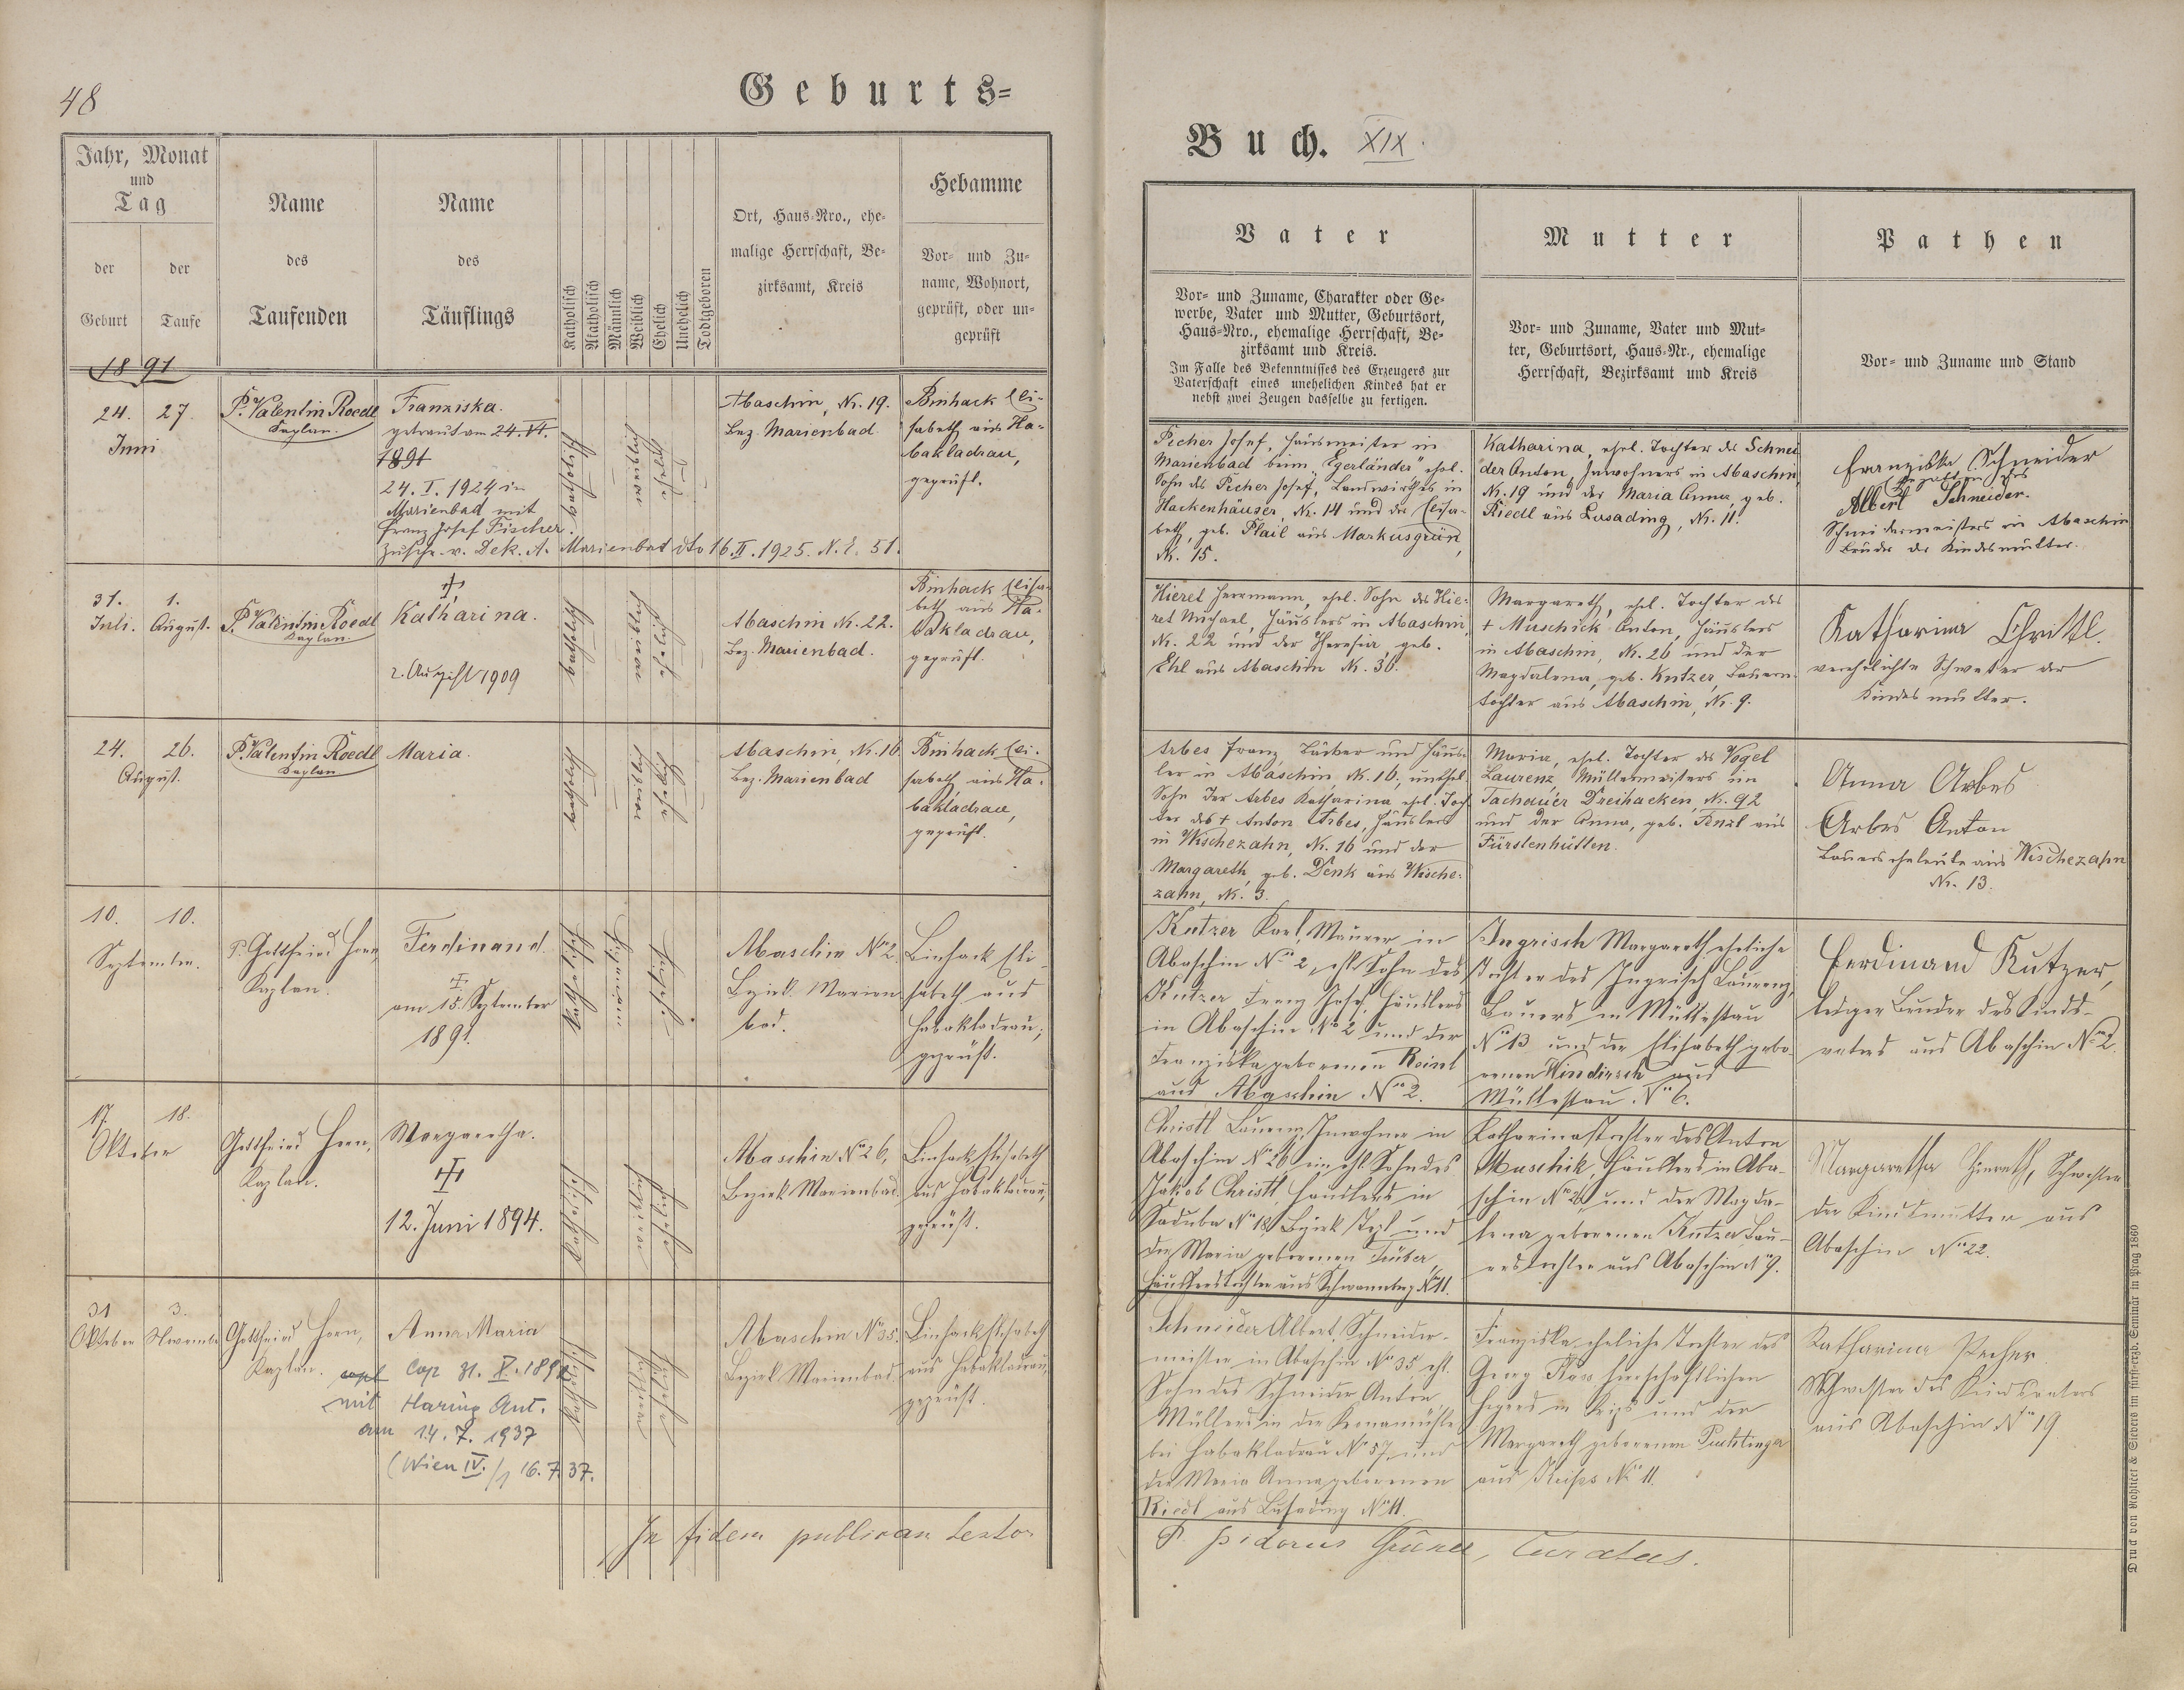 48
Geburts=
Jahr, Monat
und
Tag
der
Geburt
der
Taufe
Name
des
Taufenden
Name
des
Täuflings
Katholisch
Akatholisch
Männlich
Weiblich
Ehelich
Unehelich
Todtgeboren
Ort, Haus-Nro., ehe-
malige Herrschaft, Be-
zirksamt, Kreis
Hebamme
Vor- und Zu-
name, Wohnort,
geprüft, oder un-
geprüft
1891
24. 27.
Juni
P. Valentin Roedl
Kaplan.
Franziska.
getraut am 24. VI.
1891
24. I. 1924 in
Marienbad mit
Franz Josef Fischer.
Zuschr. v. Dek. A. Marienbad dto 16. II. 1925. N. E. 51.
katholisch
weiblich
ehelich
Abaschin, Nr. 19.
Bez. Marienbad.
Binhack Eli-
sabeth aus Ha-
bakladrau,
geprüft.
31. 1.
Juli. August.
P. Valentin Roedl
Kaplan.
Katharina.
2. August 1909
katholisch
weiblich
ehelich
Abaschin Nr. 22.
Bez. Marienbad.
Binhack Elisa-
beth aus Ha-
bakladrau,
geprüft.
24. 26.
August.
P. Valentin Roedl
Kaplan
Maria.
katholisch
weiblich
ehelich
Abaschin, Nr. 16.
Bez. Marienbad
Binhack Eli-
sabeth aus Ha-
bakladrau,
geprüft.
10. 10.
September.
P. Gottfried Horn,
Kaplan.
Ferdinand
am 15. September
1891.
Katholisch
männlich
ehelich
Abaschin No 2.
Bezirk Marien
bad.
Binhack Eli-
sabeth aus
Habakladrau,
geprüft.
17. 18.
Oktober
Gottfried Horn,
Kaplan.
Margaretha.
12. Juni 1894.
Katholisch
weiblich
ehelich
Abaschin No 26,
Bezirk Marienbad.
Binhack Elisabeth
aus Habakladrau,
geprüft.
31 3.
Oktober November
Gottfried Horn,
Kaplan.
Anna Maria
copl Cop 31. X. 1891
mit Haring Ant.
am 14. 7. 1937
(Wien IV./1 16. 7. 37.
Katholisch
weiblich
ehelich
Abaschin No 35.
Bezirk Marienbad.
Binhack Elisabeth
aus Habakladrau,
geprüft.
In fidem publicam testor
Buch. XIX.
Vater
Vor- und Zuname, Charakter oder Ge-
werbe, Vater und Mutter, Geburtsort,
Haus-Nro., ehemalige Herrschaft, Be-
zirksamt und Kreis.
Im Falle des Bekenntnisses des Erzeugers zur
Vaterschaft eines unehelichen Kindes hat er
nebst zwei Zeugen dasselbe zu fertigen.
Mutter
Vor- und Zuname, Vater und Mut-
ter, Geburtsort, Haus-Nr., ehemalige
Herrschaft, Bezirksamt und Kreis
Pathen
Vor- und Zuname und Stand
Pecher Josef, Hausmeister in
Marienbad beim "Egerländer" ehel.
Sohn des Pecher Josef, Landwirthes in
Hackenhäuser, Nr. 14 und der Elisa-
beth, geb. Plail aus Markusgrün,
Nr. 15.
Katharina, ehel. Tochter des Schnei
der Anton, Inwohners in Abaschin,
Nr. 19 und der Maria Anna, geb.
Riedl aus Lusading, Nr. 11.
Franziska Schneider
Albert Schneider.
Schneidermeisters in Abaschin
Bruder der Kindesmutter.
Hieret Herrmann, ehel. Sohn des Hie-
ret Michael, Häuslers in Abaschin,
Nr. 22 und der Theresia, geb.
Ehl aus Abaschin Nr. 30.
Margareth, ehel. Tochter des
+ Muschick Anton, Häuslers
in Abaschin, Nr. 26 und der
Magdalena, geb. Kutzer, Bauern-
tochter aus Abaschin, Nr. 9.
Katharina Christl.
verehelichte Schwester der
Kindesmutter.
Arbes Franz, Bäcker und Häus-
ler in Abaschin, Nr. 16, unehel.
Sohn der Arbes Katharina, ehel. Toch
ter des + Anton Arbes, Häuslers
in Wischezahn, Nr. 16 und der
Margareth, geb. Denk aus Wische-
zahn, Nr. 3.
Maria, ehel. Tochter des Vogel
Laurenz, Müllermeisters in
Tachauer Dreihacken, Nr. 92
und der Anna, geb. Fenzl aus
Fürstenhütten.
Anna Arbes
Arbes Anton
Bauerseheleute aus Wischezahn
Nr. 13.
Kutzer Karl, Maurer in
Abaschin No 2, ehl. Sohn des
Kutzer Franz Josef, Häuslers
in Abaschin No 2 und der
Franziska geborenen Reinl
aus Abaschin No 2.
Ingrisch Margareth eheliche
Tochter des Ingrisch Laurenz,
Bauers in Müllestau
No 13 und der Elisabeth gebo-
renen Hindirsch aus
Müllestau No 6.
Ferdinand Kutzer,
lediger Bruder des Kinds-
vaters aus Abaschin No 2.
Christl Laurenz, Inwohner in
Abaschin No 26 ein ehl. Sohn des
Jakob Christl Häuslers in
No 12 Bezirk Tepl und
der Maria geborenen
Häuslerstochter aus Schwannberg No 11.
Katharina Tochter des Anton
Muschik, Häuslers in Aba-
schin No 26 und der Magda-
lena geborenen Kutzer Bau-
erstochter aus Abaschin No 9.
Margaretha Hiereth, Schwester
der Kindsmutter aus
Abaschin No 22.
Schneider Albert, Schneider-
meister in Abaschin No 35, ehl.
Sohn des Schneider Anton,
Müllers in der
bei Habakladrau No 57, und
der Maria Anna geborenen
Riedl aus Lusading No 11.
Franziska eheliche Tochter des
Georg herrschaftlichen
Hegers in und der
Margareth geborenen
aus No 11.
Katharina Pecher
Schwester des Kindsvaters
aus Abaschin No 19.
P. Isidorus Curatus.
Druck von Rohliček & Sievers im fürst-erzb. Seminär in Prag 1860